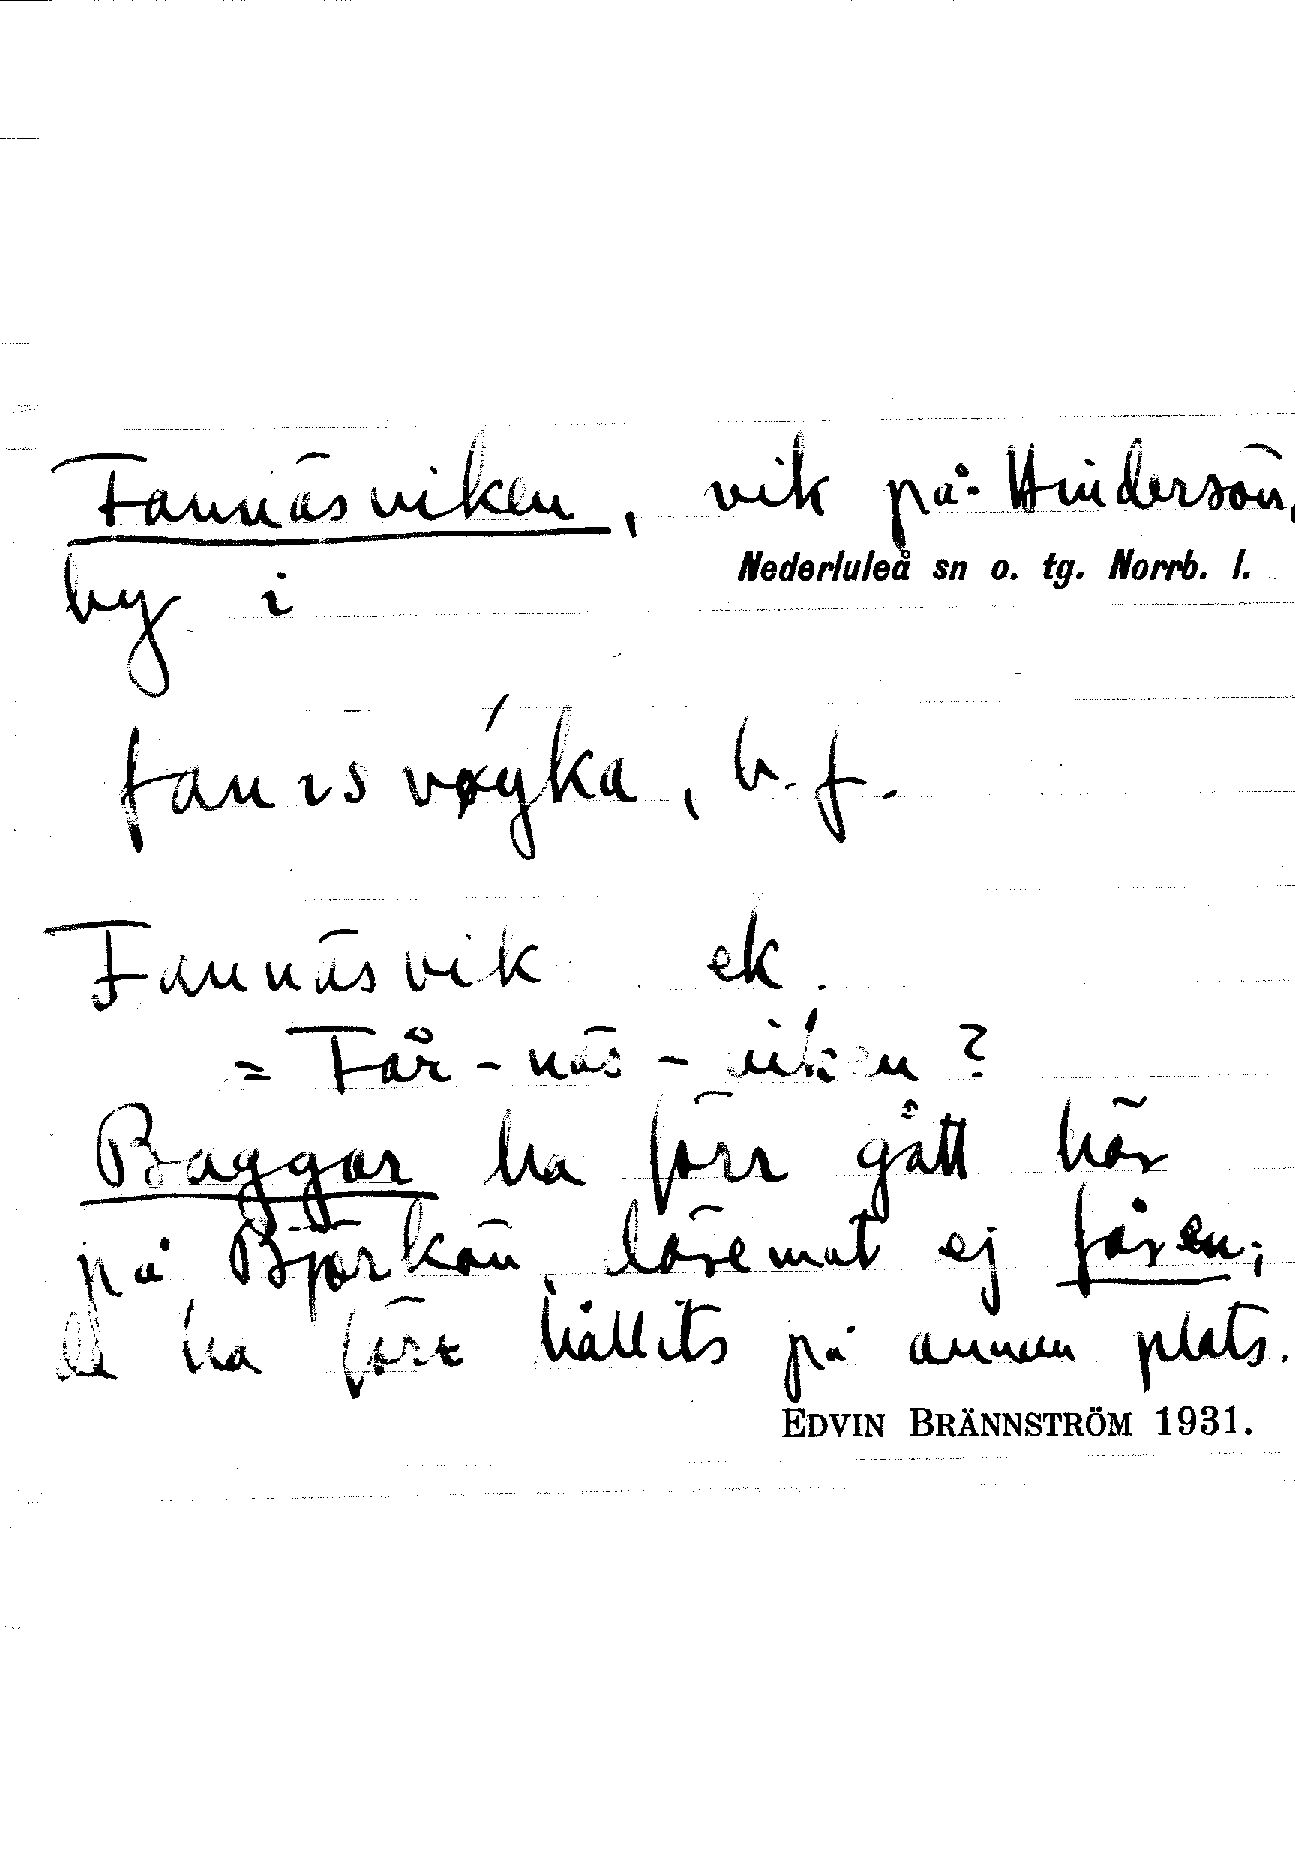 Fannäsviken, vik på Hindersön,
by i Nederluleå sn o. tg. Norrb. l.
fanısvøyka, b. f.
Fannäsvik ek.
= Får-näs-viken?
Baggar ha förr gått här
på Björkön, däremot ej fåren;
de ha förr hållits på annan plats.
EDVIN BRÄNNSTRÖM 1931.